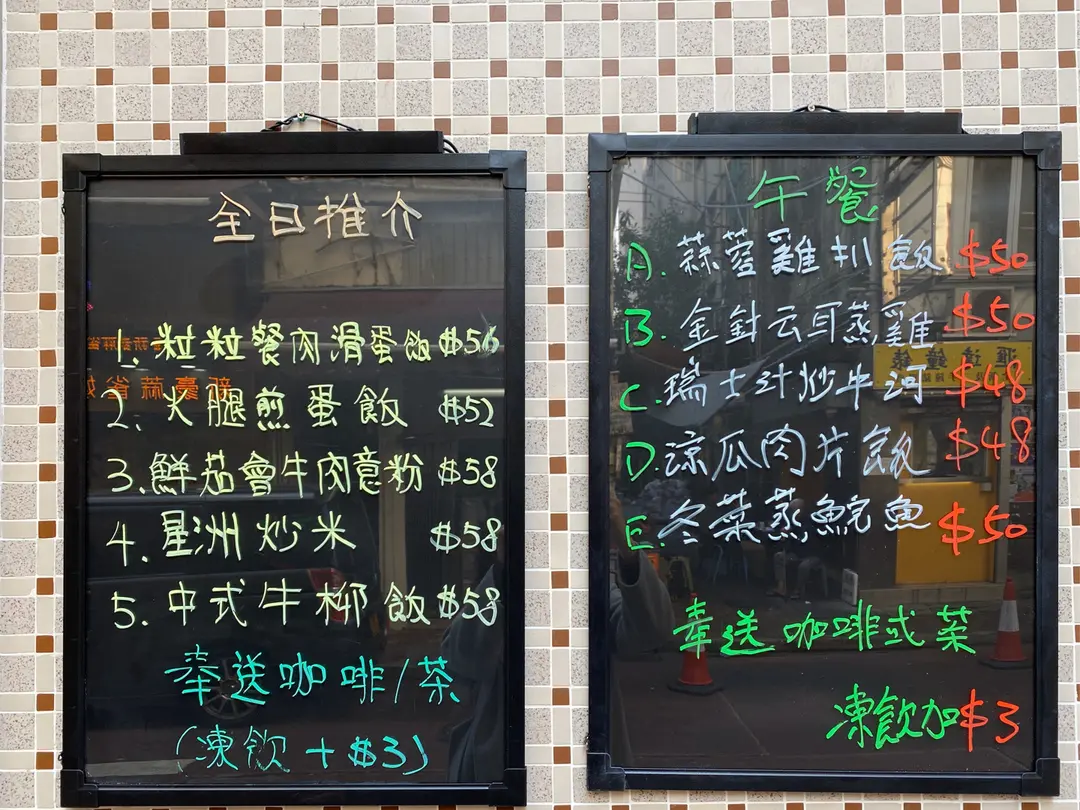 全日推介
1. 粒粒餐肉滑蛋飯 $56
2. 火腿煎蛋飯 $52
3. 鮮茄會牛肉意粉 $58
4. 星洲炒米 $58
5. 中式牛柳飯 $58
奉送咖啡/茶
(凍飲+$3)
午餐
A. 蒜蓉雞扒飯 $50
B. 金針云耳蒸雞 $50
C. 瑞士汁炒牛河 $48
D. 涼瓜肉片飯 $48
E. 冬菜蒸鯇魚 $50
奉送咖啡或茶
凍飲加$3